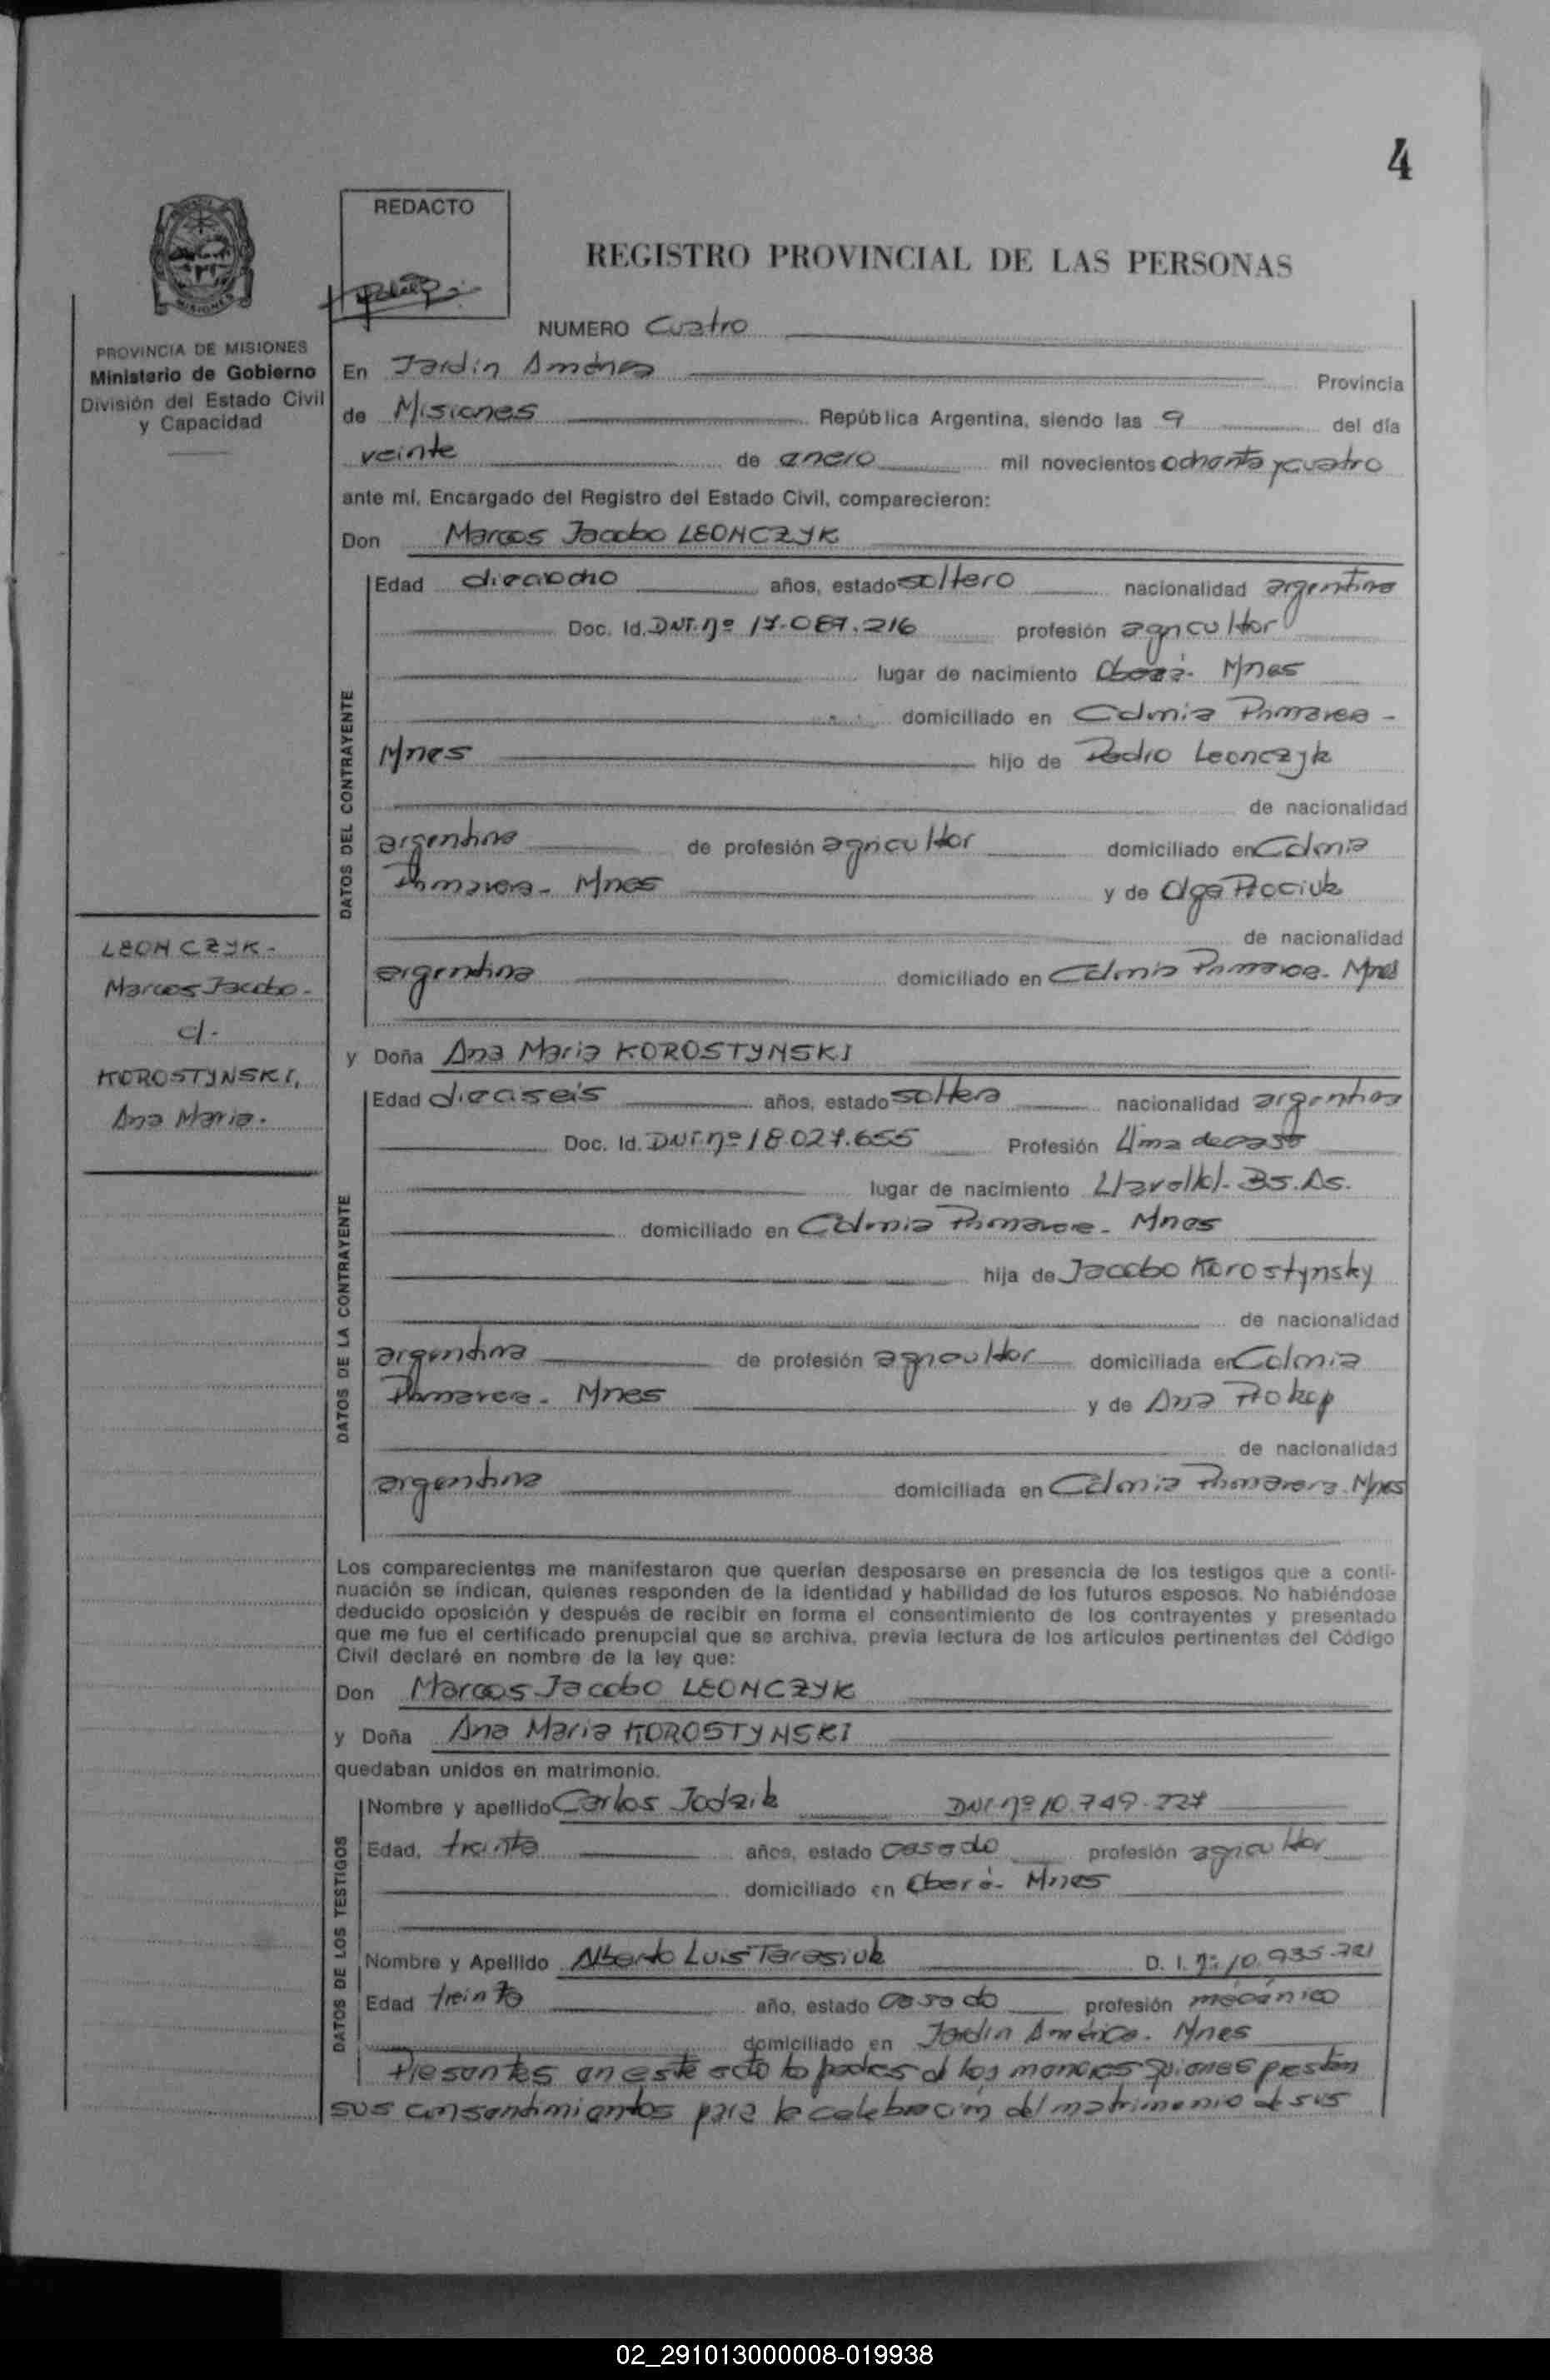 4
REDACTO
REGISTRO PROVINCIAL DE LAS PERSONAS
MISIONES
PROVINCIA DE MISIONES
Ministerio de Gobierno
División del Estado Civil
y Capacidad
NUMERO Cuatro
En Jardín América Provincia
de Misiones República Argentina, siendo las 9 del día
veinte de enero mil novecientos ochenta y cuatro
ante mí, Encargado del Registro del Estado Civil, comparecieron:
Don Marcos Jacobo LEONCZYK
DATOS DEL CONTRAYENTE
Edad dieciocho años, estado soltero nacionalidad argentina
Doc. Id. DNI. nº 17.089.216 profesión agricultor
lugar de nacimiento Oberá- Mnes
domiciliado en Colonia Primavera -
Mnes hijo de Pedro Leonczyk
de nacionalidad
argentina de profesión agricultor domiciliado en Colonia
Primavera- Mnes y de Olga Prociuk
de nacionalidad
argentina domiciliado en Colonia Primavera- Mnes
LEONCZYK-
Marcos Jacobo-
c/-
KOROSTYNSKI,
Ana Maria.
y Doña Ana Maria KOROSTYNSKI
DATOS DE LA CONTRAYENTE
Edad dieciseis años, estado soltera nacionalidad argentina
Doc. Id. DNI. nº 18.027.655 Profesión Ama de casa
lugar de nacimiento Llavallol- Bs.As.
domiciliado en Colonia Primavera- Mnes
hija de Jacobo Korostynsky
de nacionalidad
argentina de profesión agricultor domiciliada en Colonia
Primavera- Mnes y de Ana Prokop
de nacionalidad
argentina domiciliada en Colonia Primavera. Mnes
Los comparecientes me manifestaron que querían desposarse en presencia de los testigos que a conti-
nuación se indican, quienes responden de la identidad y habilidad de los futuros esposos. No habiéndose
deducido oposición y después de recibir en forma el consentimiento de los contrayentes y presentado
que me fue el certificado prenupcial que se archiva, previa lectura de los artículos pertinentes del Código
Civil declaré en nombre de la ley que:
Don Marcos Jacobo LEONCZYK
y Doña Ana Maria KOROSTYNSKI
quedaban unidos en matrimonio.
DATOS DE LOS TESTIGOS
Nombre y apellido Carlos Jodzik DNI nº 10.749.227
Edad, treinta años, estado casado profesión agricultor
domiciliado en Oberá- Mnes
Nombre y Apellido Alberto Luis Tarasiuk D. I. nº 10.935.721
Edad treinta año, estado casado profesión mecánico
domiciliado en Jardín América. Mnes
Presentes en este acto los padres de los menores quienes prestan
sus consentimientos para la celebración del matrimonio de sus
02_291013000008-019938